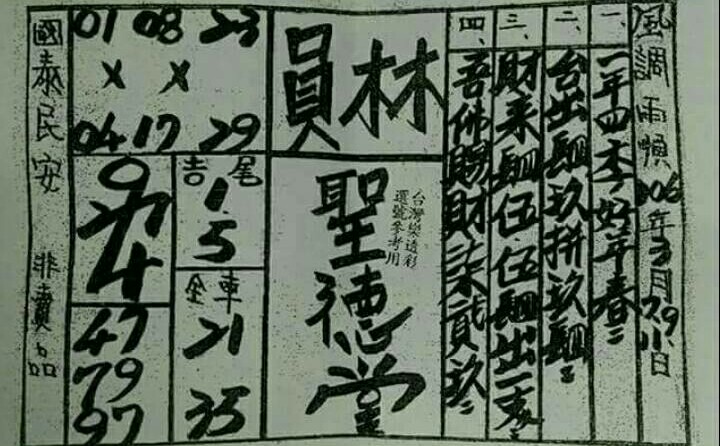 風調雨順 106年3月29
一、一年四季好年春
二、台出肆玖拼玖肆
三、財來肆伍.伍肆出
四、吾佛賜財柒貳玖
員林
聖德堂
台灣樂透彩
選號參考用
01 08 23
x x
04 17 29
吉尾
1.5
全車
21
35
4
47
79
97
國泰民安 非賣品